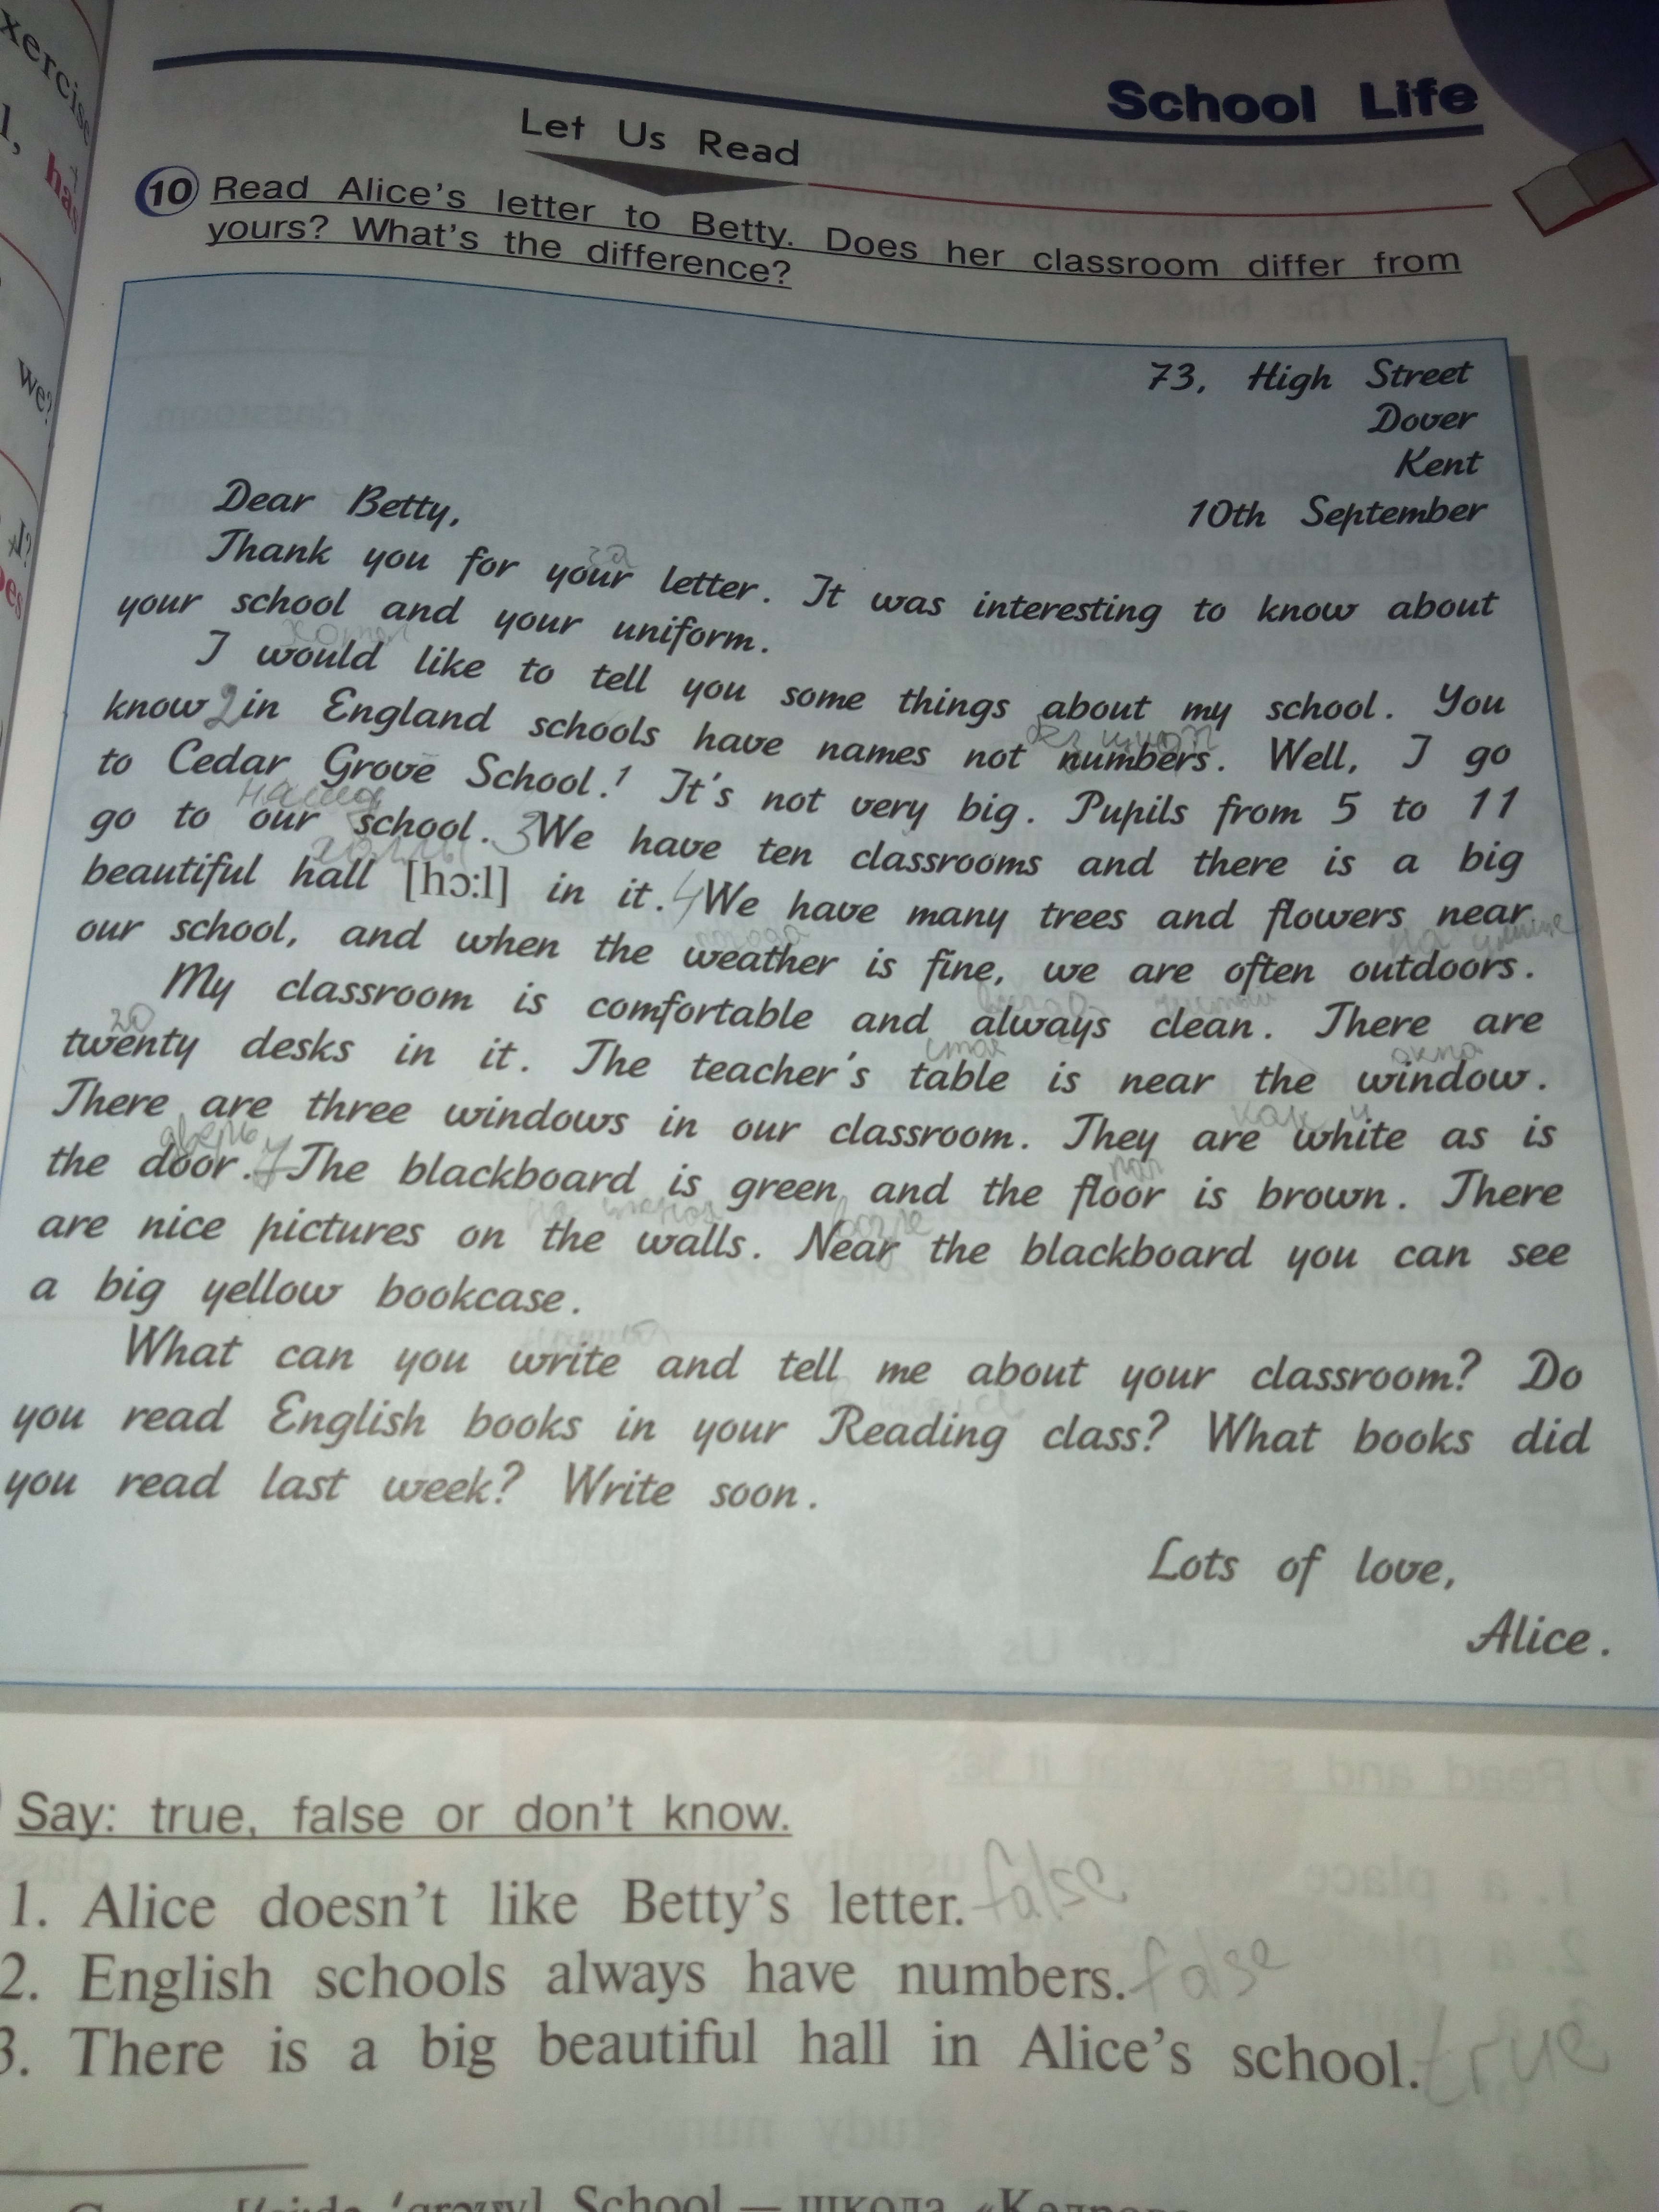 xercise
l, has
we?
School Life
Let Us Read
10 Read Alice's letter to Betty. Does her classroom differ from
yours? What's the difference?
73, High Street
Dover
Kent
10th September
Dear Betty,
за
Thank you for your letter. It was interesting to know about
your school and your uniform.
I would like to tell you some things about my school. You
know 2 in England schools have names not numbers. Well, I go
to Cedar Grove School.¹ It's not very big. Pupils from 5 to 11
наша
go to our school. 3 We have ten classrooms and there is a big
beautiful hall [hɔ:l] in it. 4 We have many trees and flowers near
погода на улице
our school, and when the weather is fine, we are often outdoors.
My classroom is comfortable and always clean. There are
20 стол окна
twenty desks in it. The teacher's table is near the window.
как и
There are three windows in our classroom. They are white as is
дверь пол
the door. 7 The blackboard is green and the floor is brown. There
на стенах возле
are nice pictures on the walls. Near the blackboard you can see
a big yellow bookcase.
What can you write and tell me about your classroom? Do
you read English books in your Reading class? What books did
you read last week? Write soon.
Lots of love,
Alice.
Say: true, false or don't know.
1. Alice doesn't like Betty's letter. false
2. English schools always have numbers. false
3. There is a big beautiful hall in Alice's school. true
School — школа